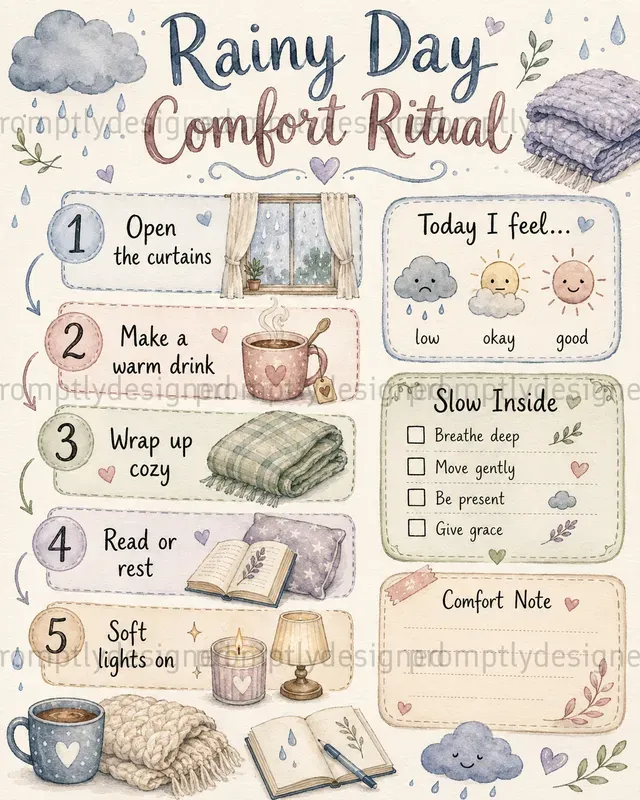 Rainy Day
Comfort Ritual
1
Open
the curtains
2
Make a
warm drink
3
Wrap up
cozy
4
Read or
rest
5
Soft
lights on
Today I feel...
low
okay
good
Slow Inside
Breathe deep
Move gently
Be present
Give grace
Comfort Note